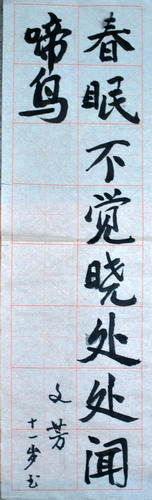 春眠不觉晓处处闻
啼鸟
文芳
十一岁书